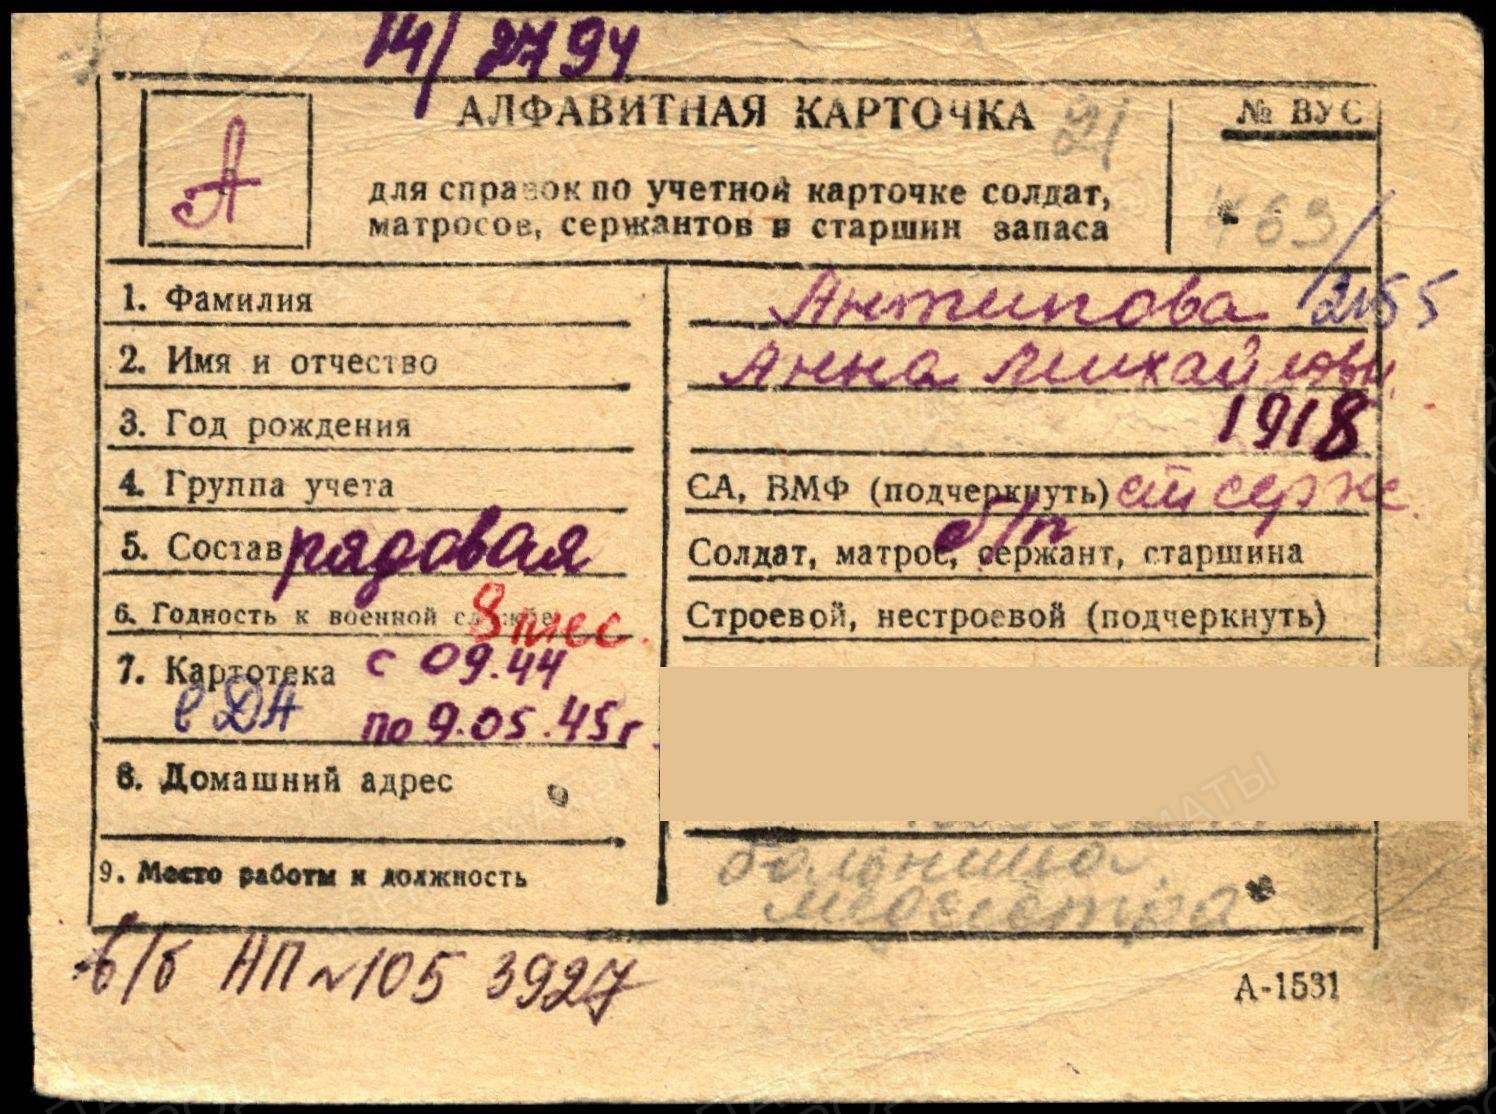 14/2794
АЛФАВИТНАЯ КАРТОЧКА
21
№ ВУС
А
для справок по учетной карточке солдат,
матросов, сержантов и старшин запаса
463/2155
1. Фамилия Антипова
2. Имя и отчество Анна Михайловн.
3. Год рождения 1918
4. Группа учета СА, ВМФ (подчеркнуть) ст серж.
5. Состав рядовая Солдат, матрос, сержант, старшина б/п
6. Годность к военной службе 8 мес. Строевой, нестроевой (подчеркнуть)
7. Картотека с 09.44
в ДА по 9.05.45г.
8. Домашний адрес
9. Место работы и должность больница
медсестра
в/б АП №105 3927
А-1531